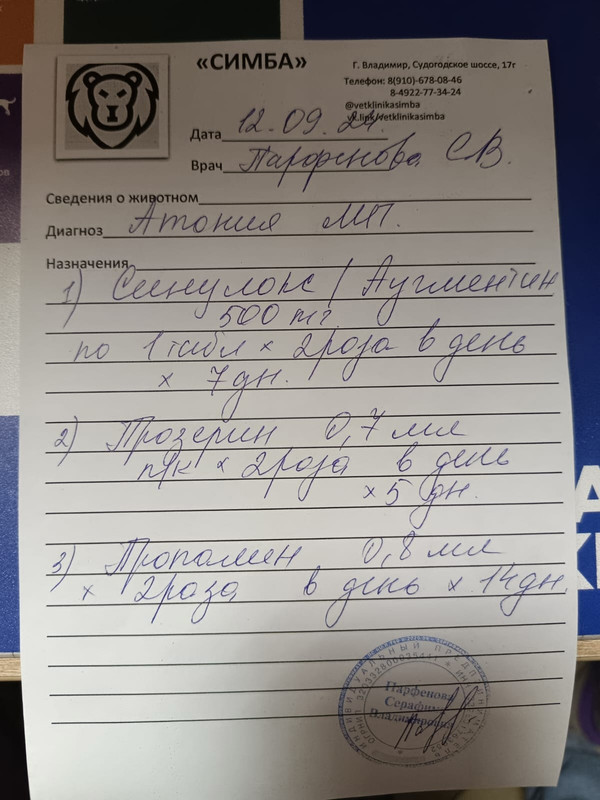 «СИМБА»
Г. Владимир, Судогодское шоссе, 17г
Телефон: 8(910)-678-08-46
8-4922-77-34-24
@vetklinikasimba
vk.link/vetklinikasimba
Дата 12.09.24.
Врач Парфенова С.В.
Сведения о животном
Диагноз Атония МП.
Назначения
1) Синулокс / Аугментин
500 mг
по 1 табл × 2 раза в день
× 7 дн.
2) Прозерин 0,7 мл
п/к × 2 раза в день
× 5 дн.
3) Пропалин 0,8 мл
× 2 раза в день × 14 дн.
ИНДИВИДУАЛЬНЫЙ ПРЕДПРИНИМАТЕЛЬ
Парфенова
Серафима
Владимировна